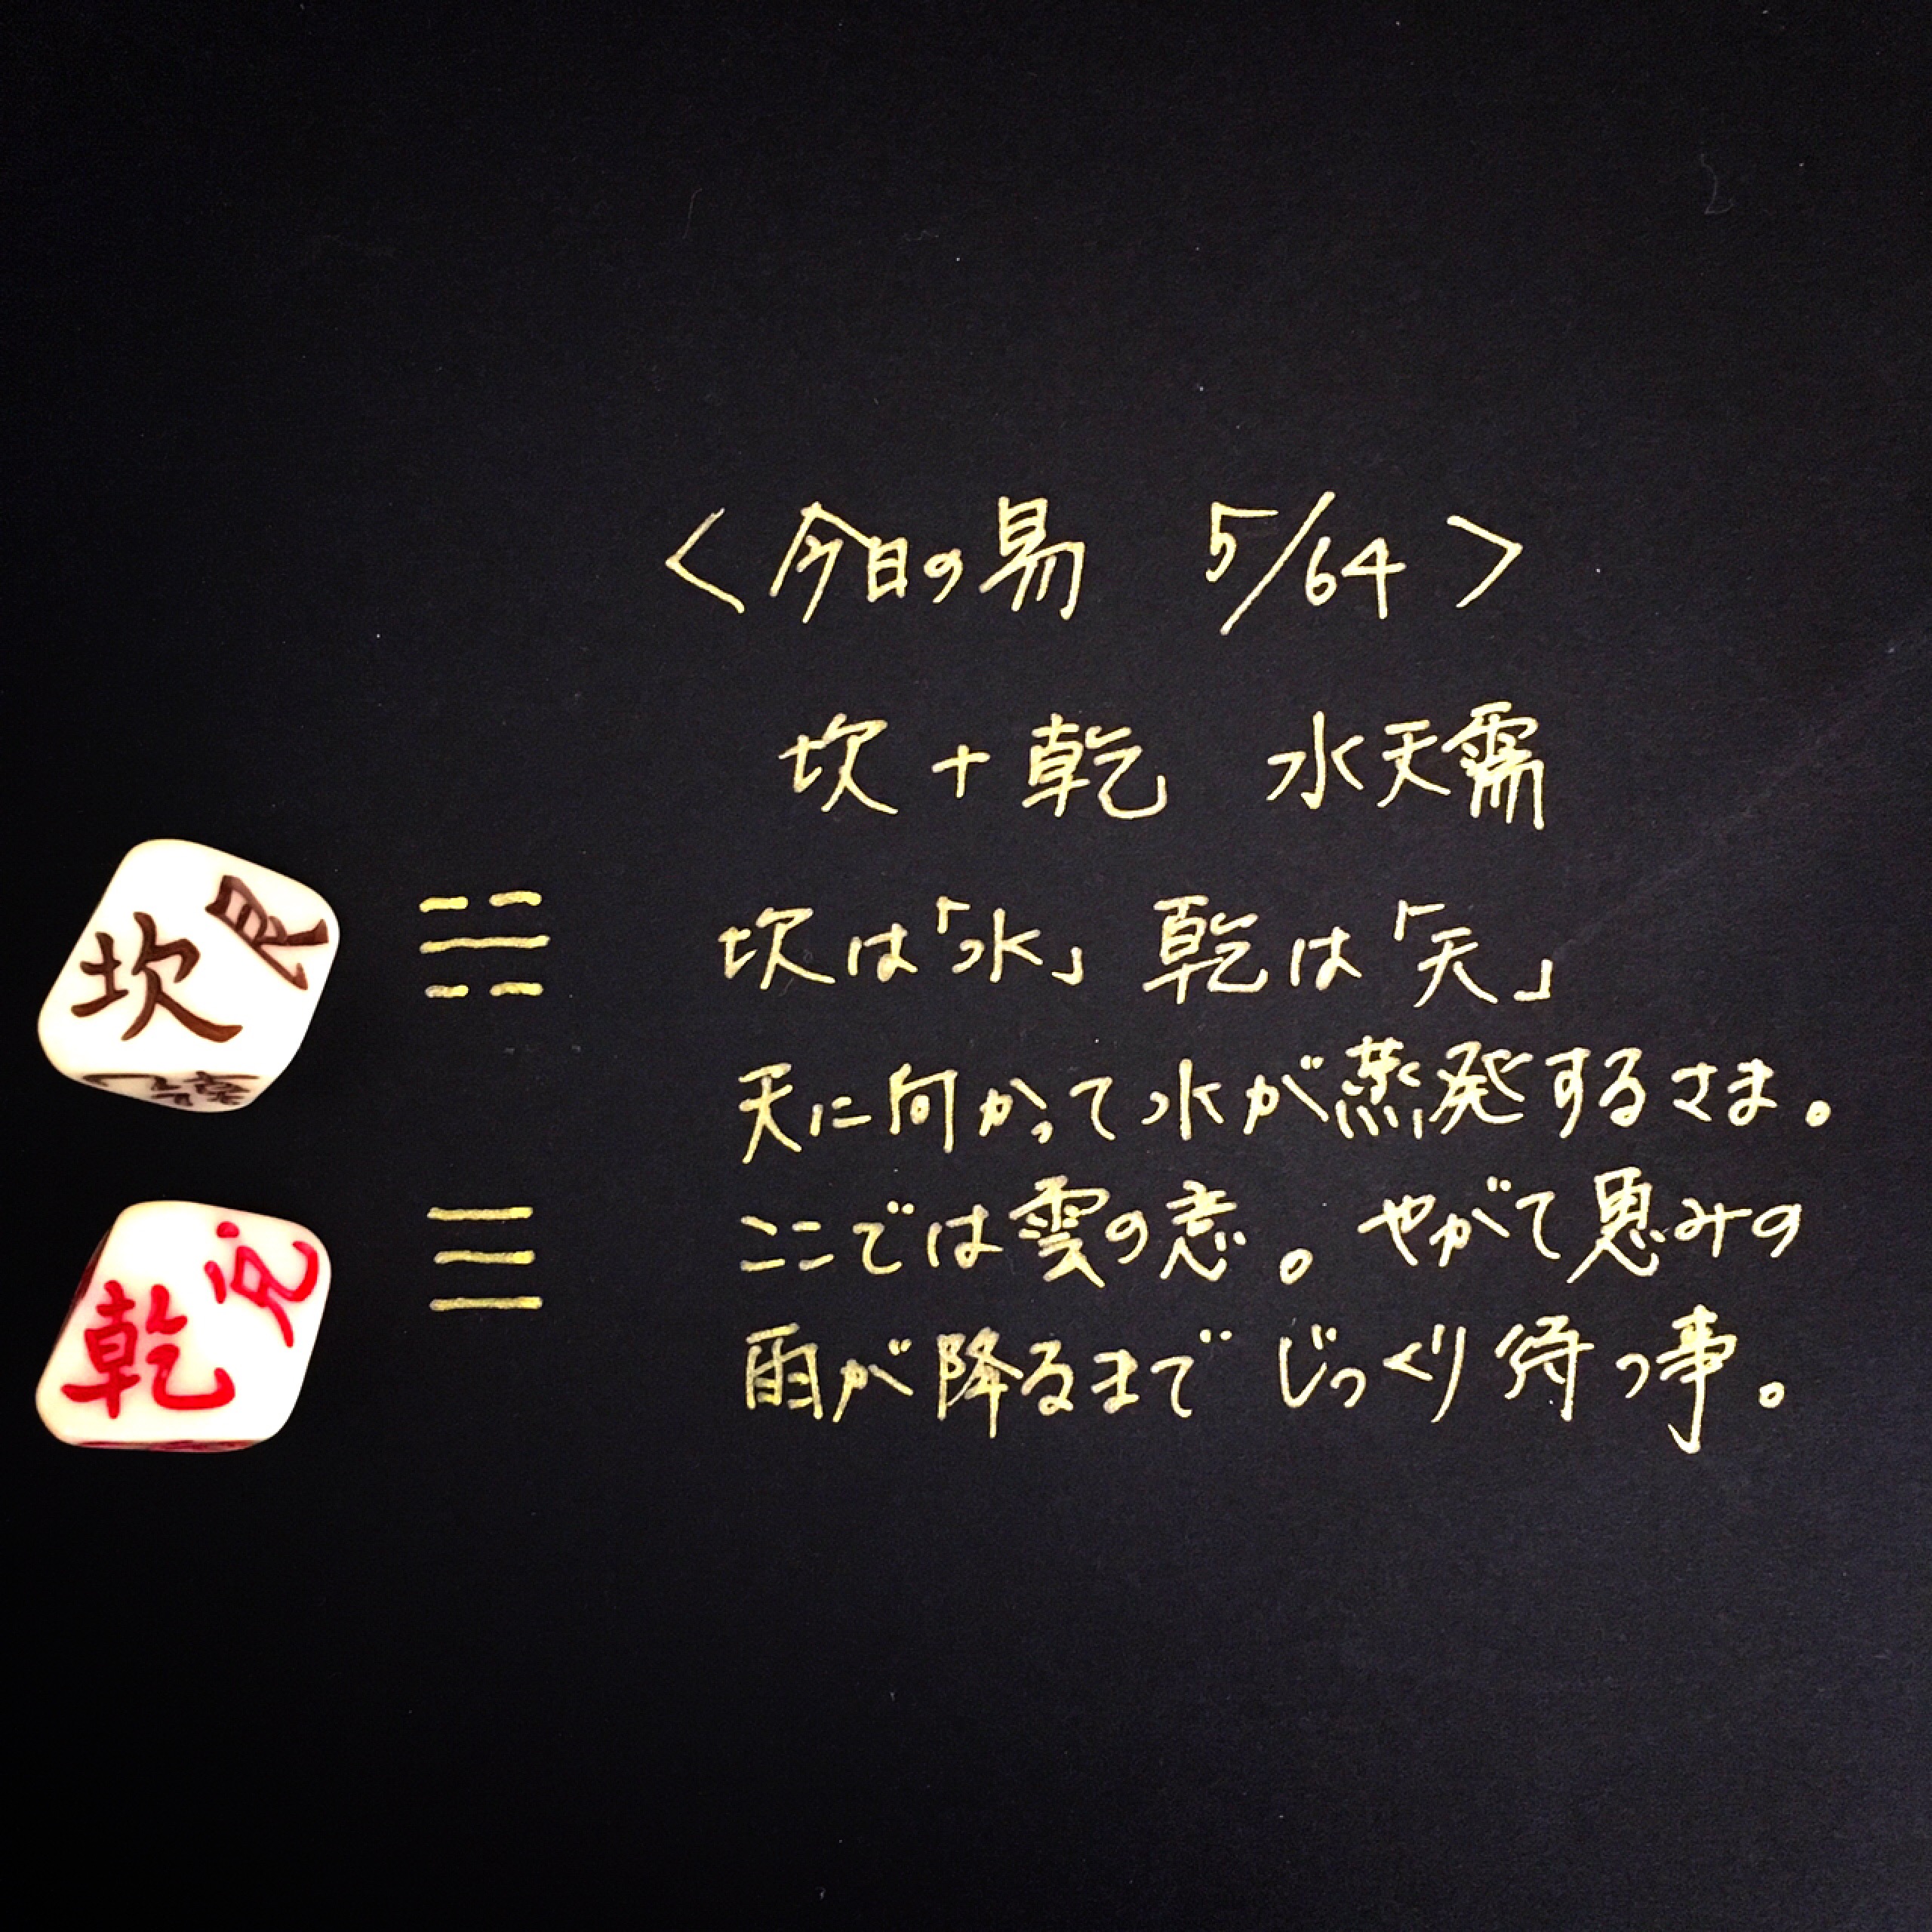 <今日の易 5/64>
坎+乾 水天需
坎 艮
坎は「水」 乾は「天」
天に向かって水が蒸発するさま。
ここでは雲の意。やがて恵みの
乾 兌
雨が降るまで じっくり待つ事。